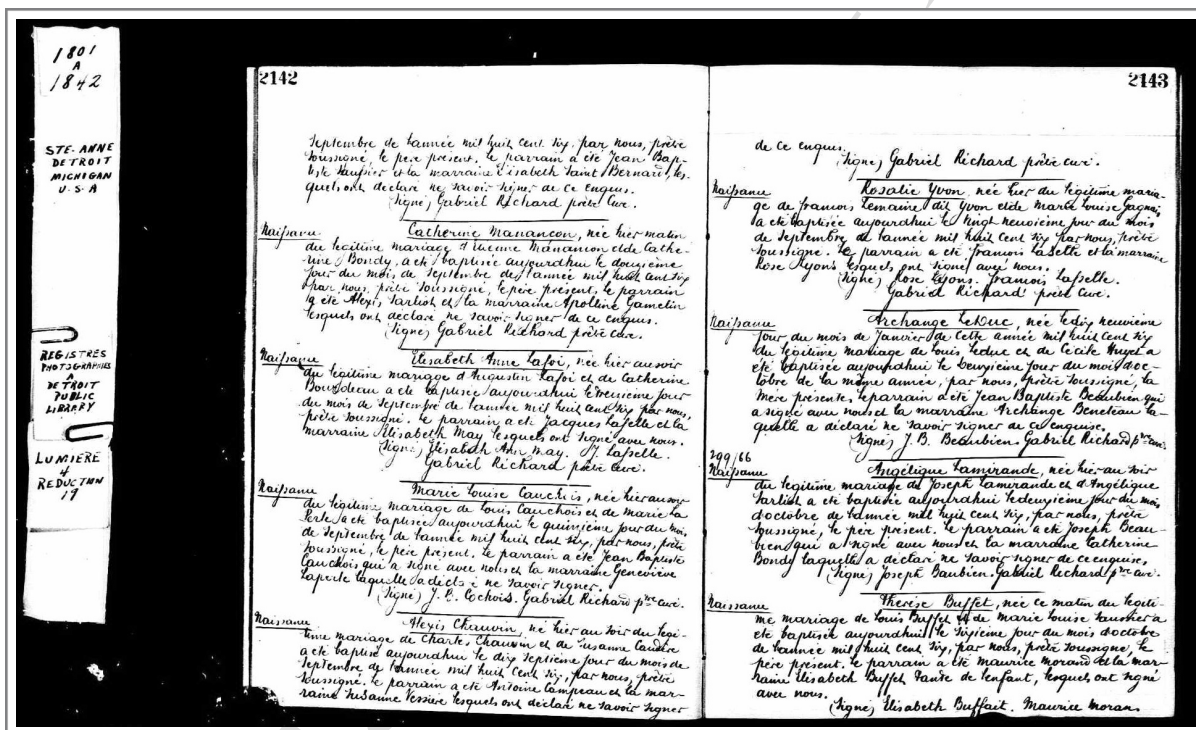 1801
A
1842
STE. ANNE
DETROIT
MICHIGAN
U.S.A
REGISTRES
PHOTOGRAPHIES
A
DETROIT
PUBLIC
LIBRARY
LUMIERE
4
REDUCTION
17
2142
Septembre de l'année mil huit cent six, par nous, prêtre
soussigné, le père présent. le parrain a été Jean Bap-
tiste et la marraine Elisabeth Saint Bernard, les-
quels ont déclaré ne savoir signer de ce enquis.
(Signé) Gabriel Richard prêtre Curé.
Naissance Catherine Manancon, née hier matin
du légitime mariage d'Etienne Manancon et de Cathe-
rine Bondy, a été baptisée aujourdhui le douzième
jour du mois de Septembre de l'année mil huit cent six
par nous, prêtre soussigné, le père présent, le parrain
a été Alexis Sarliot et la marraine Apolline Gamelin
lesquels ont déclaré ne savoir signer de ce enquis.
(Signé) Gabriel Richard prêtre Curé.
Naissance Elisabeth Anne Lafoi, née hier au soir
du légitime mariage d'Augustin Lafoi et de Catherine
Bourdeau a été baptisée aujourdhui le treizième jour
du mois de Septembre de l'année mil huit cent six par nous,
prêtre soussigné. le parrain a été Jacques Laselle et la
marraine Elisabeth May lesquels ont signé avec nous.
(Signé) Elisabeth Ann May. J. Lasselle.
Gabriel Richard prêtre Curé.
Naissance Marie Louise Cauchois, née hier au soir
du légitime mariage de Louis Cauchois et de Marie La
Perle a été baptisée aujourdhui le quinzième jour du mois
de Septembre de l'année mil huit cent six, par nous, prêtre
soussigné, le père présent. le parrain a été Jean Baptiste
Cauchois qui a signé avec nous et la marraine Geneviève
Laperle laquelle a déclaré ne savoir signer.
(Signé) J. B. Cochois. Gabriel Richard ptre curé.
Naissance Alexis Chauvin, né hier au soir du légi-
time mariage de Charles Chauvin et de Susanne
a été baptisé aujourdhui le dix septième jour du mois de
Septembre de l'année mil huit cent six, par nous, prêtre
soussigné. le parrain a été Antoine Campeau et la mar-
raine Susanne Vessière lesquels ont déclaré ne savoir signer
2143
de ce enquis.
(Signé) Gabriel Richard prêtre curé.
Naissance Rosalie Yvon, née hier du légitime maria-
ge de françois Lemaine dit Yvon et de Marie Louise Gagnié
a été baptisée aujourdhui le vingt neuvième jour du mois
de Septembre de l'année mil huit cent six par nous, prêtre
soussigné. le parrain a été françois Laselle et la marraine
Rose Lyons lesquels ont signé avec nous.
(Signé) Rose Lyons. françois Lasselle.
Gabriel Richard prêtre Curé.
Naissance Archange LeDuc, née le dix neuvième
jour du mois de Janvier de cette année mil huit cent six
du légitime mariage de Louis Leduc et de Cécile a
été baptisée aujourdhui le deuxième jour du mois d'oc-
tobre de la même année, par nous, prêtre soussigné, la
mère présente, le parrain a été Jean Baptiste Beaubien qui
a signé avec nous et la marraine Archange Beneteau la-
quelle a déclaré ne savoir signer de ce enquise.
(Signé) J. B. Beaubien. Gabriel Richard ptre curé.
299/66
Naissance Angélique Lamirande, née hier au soir
du légitime mariage de Joseph Lamirande et d'Angélique
Sarliot a été baptisée aujourdhui le deuxième jour du mois
d'octobre de l'année mil huit cent six, par nous, prêtre
soussigné, le père présent. le parrain a été Joseph Beau-
bien qui a signé avec nous et la marraine Catherine
Bondy laquelle a déclaré ne savoir signer de ce enquise.
(Signé) Joseph Baubien. Gabriel Richard ptre curé.
Naissance Thérèse Buffet, née ce matin du légiti-
me mariage de Louis Buffet et de Marie Louise Saussier a
été baptisée aujourdhui le sixième jour du mois d'octobre
de l'année mil huit cent six, par nous, prêtre soussigné, le
père présent. le parrain a été Maurice Morand et la mar-
raine Elisabeth Buffet tante de l'enfant, lesquels ont signé
avec nous.
(Signé) Elisabeth Buffait. Maurice Moran